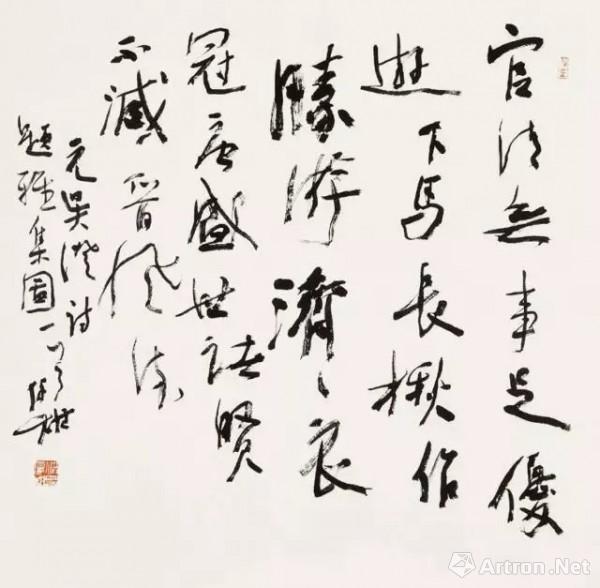 官清無事足優
遊下馬長楸作
勝游濟〻衣
冠唐盛世諸賢
不減晉風流
元吳澄詩
題雅集圖一首
Artron.Net